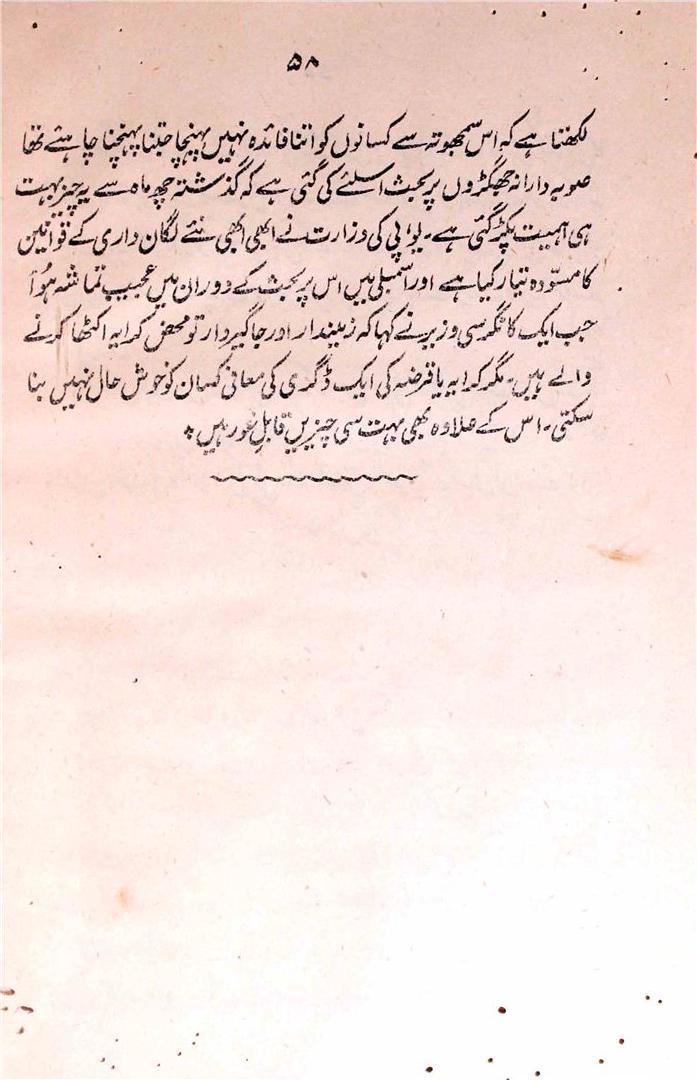 ۵۸
لکھتا ہے کہ اس سمجھوتہ سے کسانوں کو اتنا فائدہ نہیں پہنچا جتنا پہنچنا چاہئے تھا
صوبہ دارانہ جھگڑوں پر بحث اسلئے کی گئی ہے کہ گذشتہ چھ ماہ سے یہ چیز بہت
ہی اہمیت پکڑ گئی ہے۔ یو۔پی کی وزارت نے ابھی ابھی نئے لگان داری کے قوانین
کا مسوّدہ تیار کیا ہے اور اسمبلی میں اس پر بحث کے دوران میں عجیب تماشہ ہُوا
جب ایک کانگرسی وزیر نے کہا کہ زمیندار اور جاگیردار تو محض کرایہ اکٹھا کرنے
والے ہیں۔ مگر کرایہ یا قرضہ کی ایک ڈگری کی معافی کسان کو خوش حال نہیں بنا
سکتی۔ اس کے علاوہ بھی بہت سی چیزیں قابلِ غور ہیں ٭